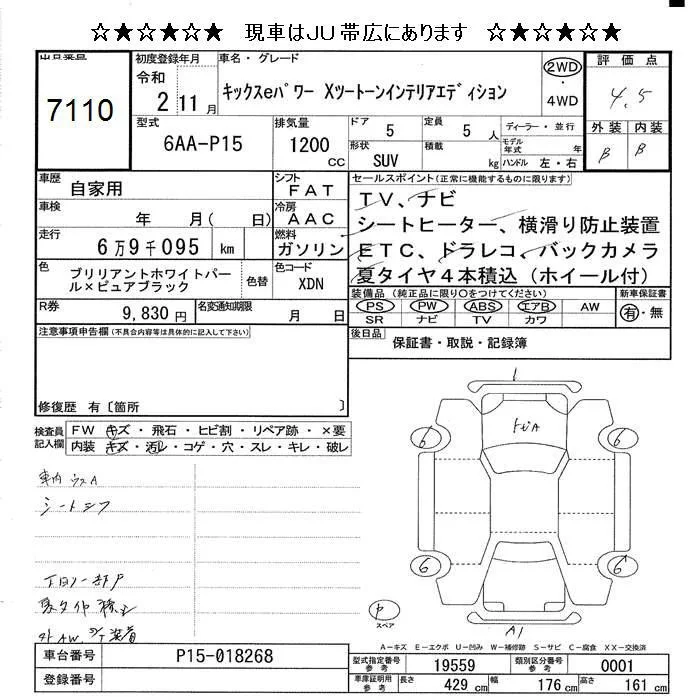 ☆★☆★☆★ 現車はJU帯広にあります ☆★☆★☆★
出品番号
7110
初度登録年月
令和 2年 11月
車名・グレード
キックスeパワー XツートーンインテリアエディションI
2WD
・4WD
評価点
4.5
外装 内装
B B
型式
6AA-P15
排気量
1200 CC
ドア 5
定員 5人
形状 SUV
積載 kg
ディーラー・並行
モデル年式 年
ハンドル 左・右
車歴
自家用
シフト FAT
車検 年 月( 日)
冷房 AAC
走行 6万9千095 km
燃料 ガソリン
セールスポイント(正常に機能するものに限ります)
TV、ナビ
シートヒーター、横滑り防止装置
ETC、ドラレコ、バックカメラ
夏タイヤ4本積込(ホイール付)
色
ブリリアントホワイトパール×ピュアブラック
色替
色コード XDN
R券 9,830円
名変通知期限 月 日
装備品(純正品に限り○をつけてください)
PS PW ABS エアB AW
SR ナビ TV カワ
新車保証書
有・無
後日品
保証書・取説・記録簿
注意事項申告欄(不具合内容等は具体的に記入して下さい)
修復歴 有〔箇所 〕
検査員記入欄
FW キズ・飛石・ヒビ割・リペア跡・×要
内装 キズ・汚レ・コゲ・穴・スレ・キレ・破レ
車内ウスA
シートシワ
1
6 6
6 6
P
スペア
A1
A-キズ E-エクボ U-凹み W-補修跡 S-サビ C-腐食 XX-交換済
車台番号 P15-018268
登録番号
型式指定番号 参考 19559
類別区分番号 参考 0001
車庫証明用 参考
長さ 429cm
幅 176cm
高さ 161cm